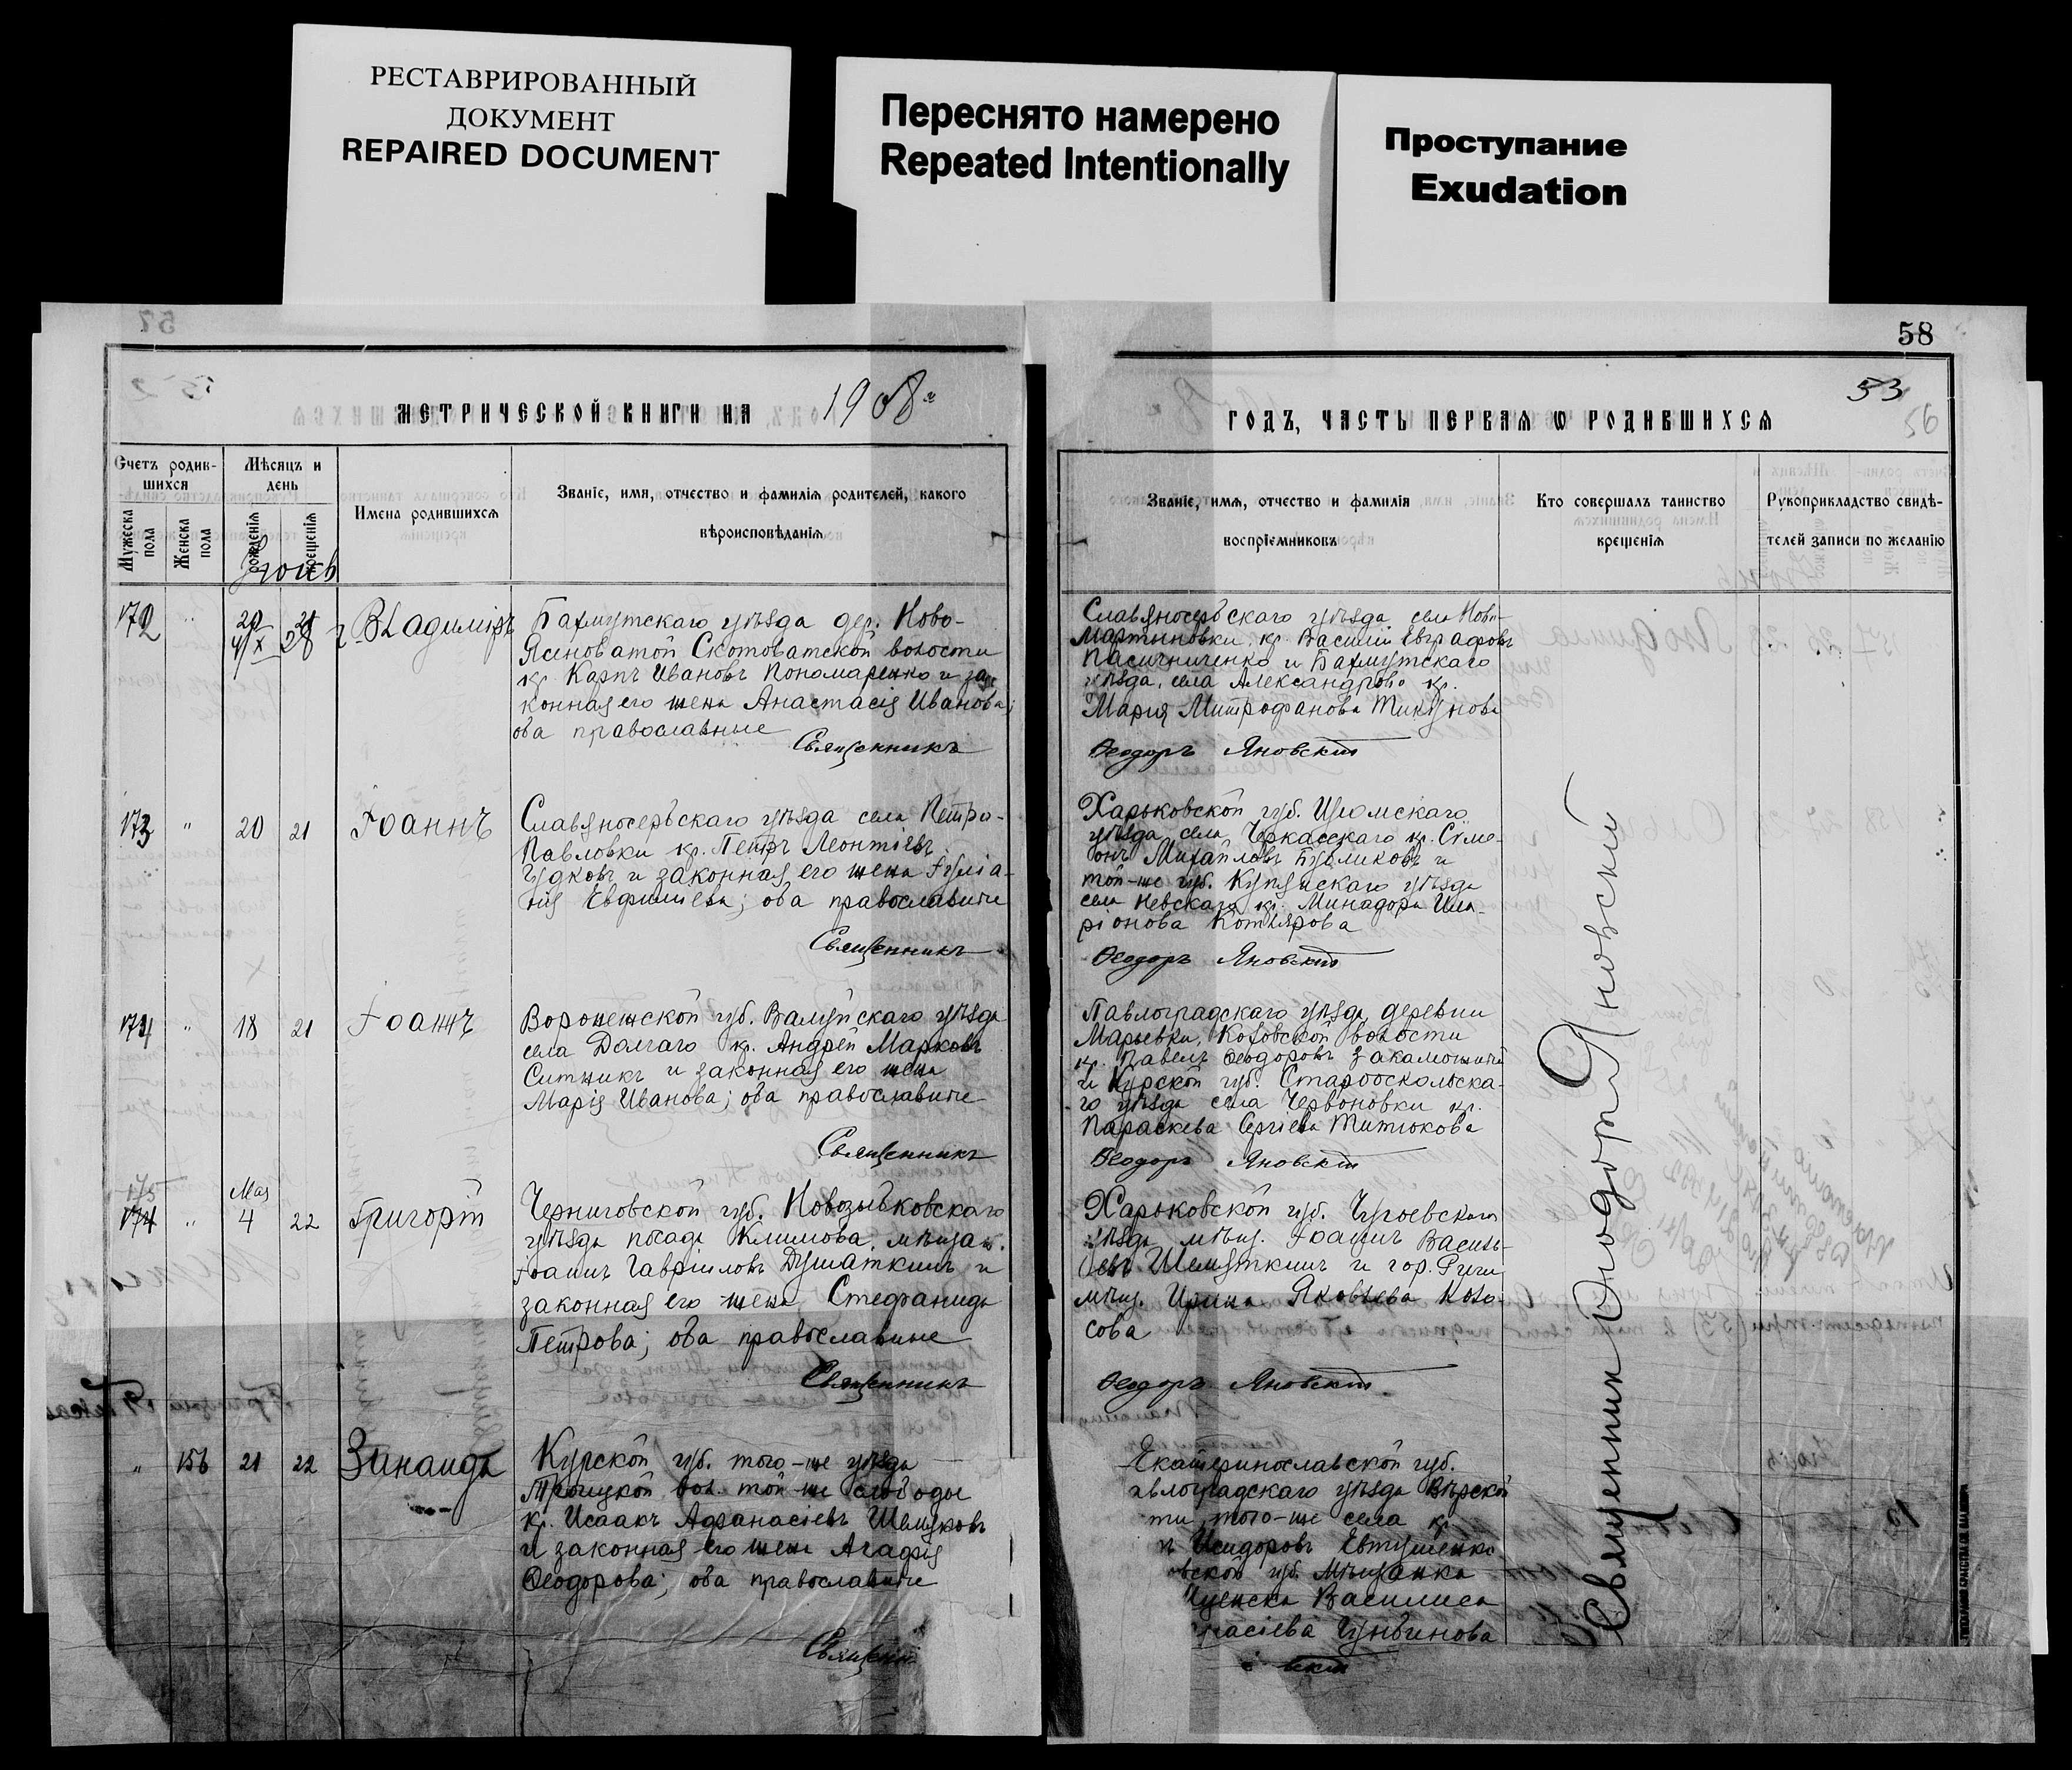 РЕСТАВРИРОВАННЫЙ
ДОКУМЕНТ
REPAIRED DOCUMENT
Переснято намерено
Repeated Intentionally
Проступание
Exudation
57
58
53
56
МЕТРИЧЕСКОЙ КНИГИ НА 1908
Счетъ родив-
шихся
Мѣсяцъ и
день
Имена родившихся
Званіе, имя, отчество и фамилія родителей, какого
вѣроисповѣданія
Мужеска
пола
Женска
пола
рожденія
крещенія
172 " 21 Владимiръ
Бахмутскаго уѣзда дер. Ново-
Ясиноватой Скотоватской волости
кр. Карпъ Ивановъ Пономаренко и за
конная его жена Анастасія Иванова;
оба православные
Священникъ
173 " 20 21 Іоаннъ
Славяносербскаго уѣзда села Петро-
Павловки кр. Петръ Леонтіевъ
Гудковъ и законная его жена Іуліа-
нія Евфиміева; оба православные
Священникъ
174 " 18 21 Іоаннъ
Воронежской губ. Валуйскаго уѣзда
села Долгаго кр. Андрей Марковъ
Ситникъ и законная его жена
Марія Иванова; оба православные
Священникъ
175
174 " Мая 4 22 Григорій
Черниговской губ. Новозыбковскаго
уѣзда посада Климова, мѣщан.
Іоаннъ Гавріиловъ Душаткинъ и
законная его жена Стефанида
Петрова; оба православные
Священникъ
" 156 21 22 Зинаида
Курской губ. того-же уѣзда
Троицкой вол. той-же слободы
кр. Исаакъ Афанасіевъ Шелуковъ
и законная его жена Агафія
Ѳеодорова; оба православные
Священни
ГОДЪ, ЧАСТЬ ПЕРВАЯ Ѡ РОДИВШИХСЯ
Званіе, имя, отчество и фамилія
воспріемниковъ
Кто совершалъ таинство
крещенія
Рукоприкладство свидѣ-
телей записи по желанію
Славяносербскаго уѣзда, села Ново-
Мартыновки, кр. Василій Евграфовъ
Пасичниченко и Бахмутскаго
уѣзда, села Александрово кр.
Марія Митрофанова Тикунова
Ѳеодоръ Яновскій
Харьковской губ. Изюмскаго
уѣзда села Черкасскаго кр. Сѵме-
онъ Михайловъ Бубликовъ и
той-же губ. Купянскаго уѣзда
села Невскаго кр. Минадора Ила-
ріонова Котлярова
Ѳеодоръ Яновскій
Павлоградскаго уѣзда деревни
Марьевки, Коховской волости
кр. Павелъ Ѳеодоровъ
и Курской губ. Старооскольска-
го уѣзда села Червоновки кр.
Параскева Сергіева Титюкова
Ѳеодоръ Яновскій
Харьковской губ. Чугоевскаго
уѣзда мѣщ. Іоаннъ Василь-
евъ Шелуткинъ и гор. Риги
мѣщ. Ирина Яковлева Коло-
сова
Ѳеодоръ Яновскій
Екатеринославской губ.
авлоградскаго уѣзда Вѣрской
ти того-же села кр.
ъ Исидоровъ Евтушенко
вской губ. мѣщанка
Василиса
насіева Гунбинова
вскій
Священникъ Ѳеодоръ Яновскій